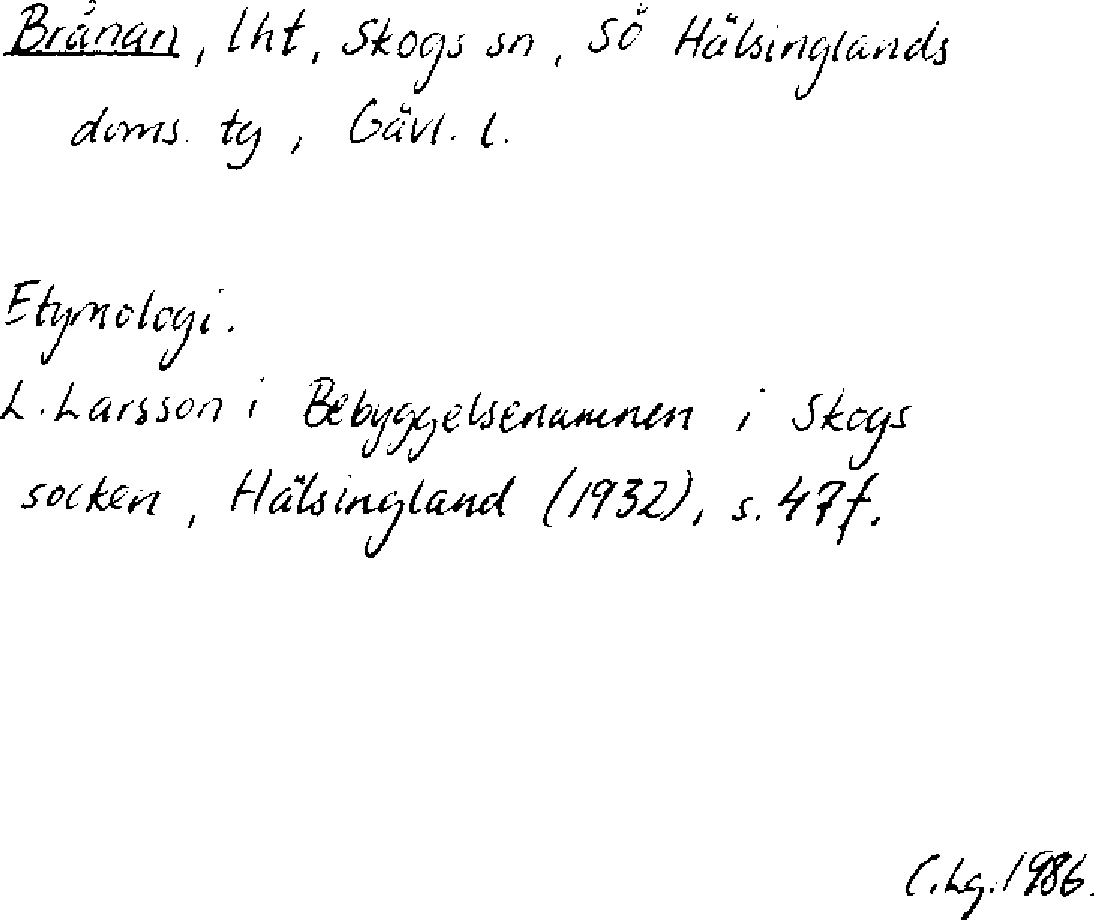 Brånan, lht, Skogs sn, Sö Hälsinglands
doms. ty, Gävl. l.
Etymologi.
L. Larsson i Bebyggelsenamnen i Skogs
socken, Hälsingland (1932), s. 47f.
C.Lg. 1986.